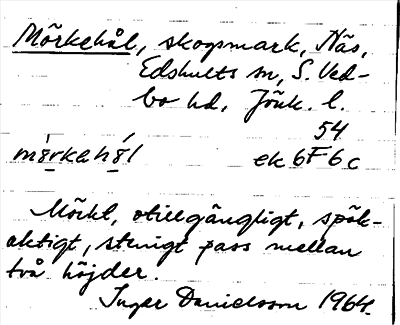 Mörkehål, skogsmark, Näs,
Edshults sn, S. Ved-
bo hd, Jönk. l.
54
mö̀rkahǻl ek 6F6c
Mörkt, otillgängligt, spök-
aktigt, stenigt pass mellan
två höjder.
Inger Danielsson 1964.